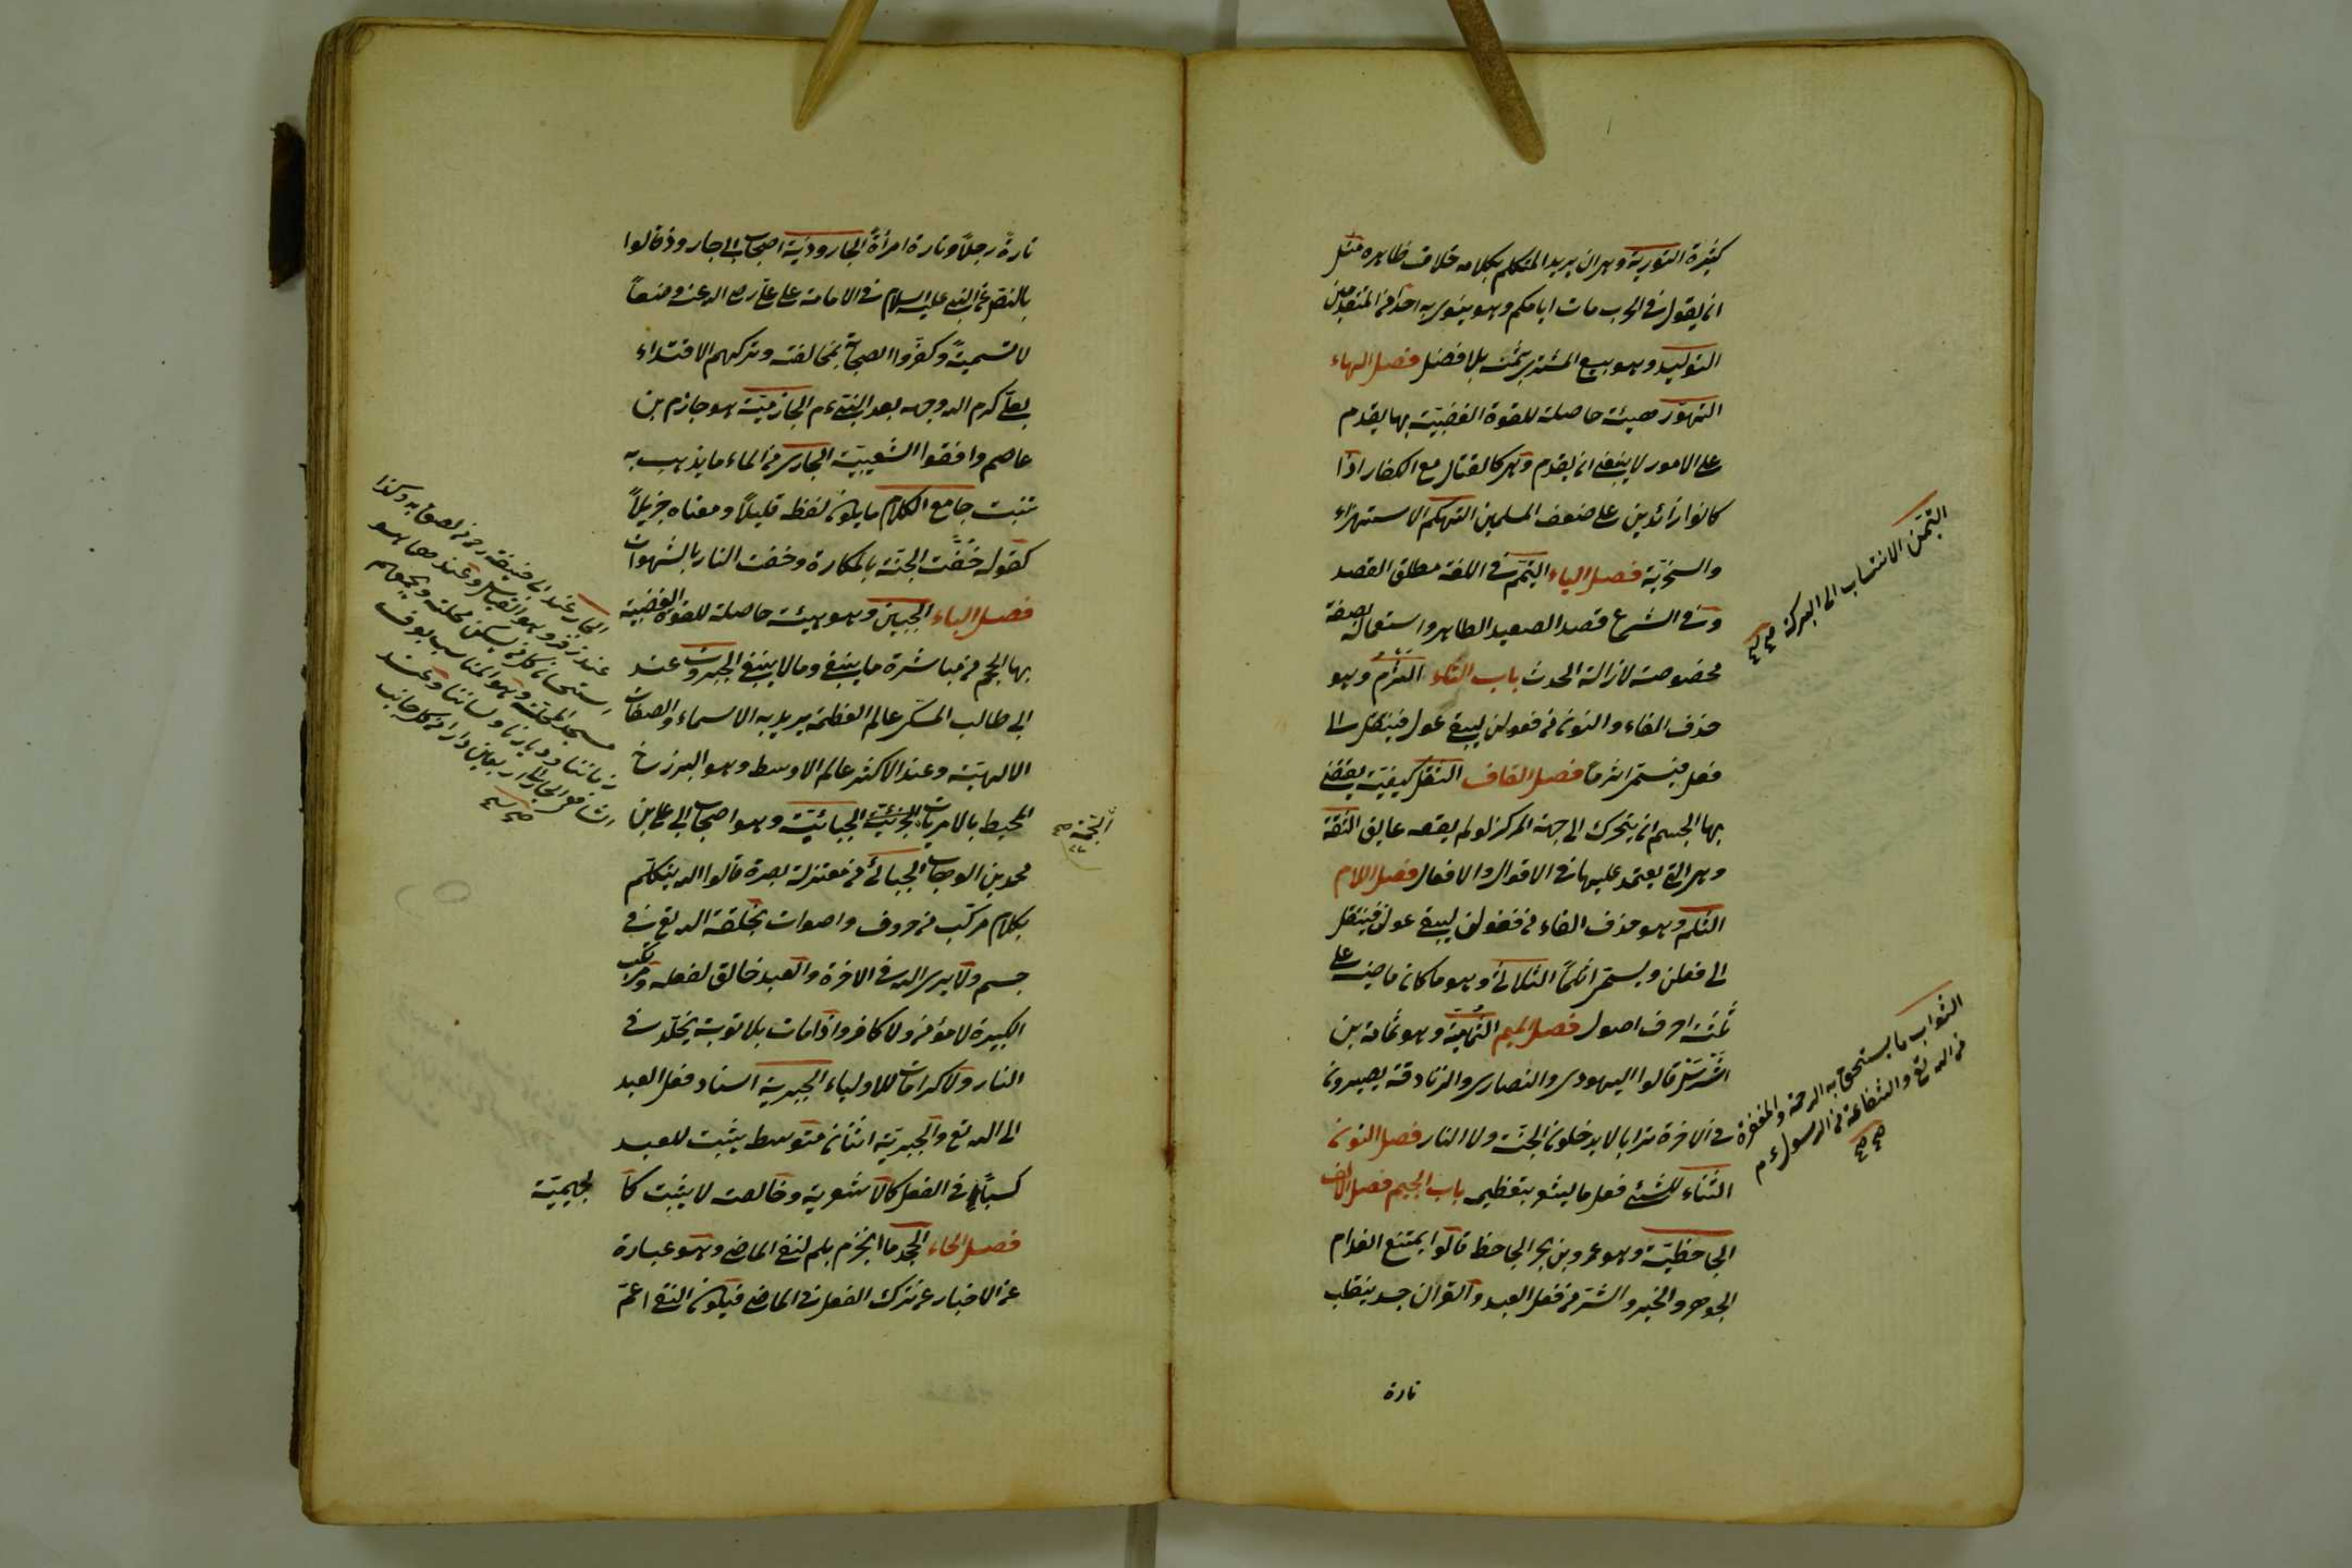 كثيرة التورية وهو ان يريد المتكلم بكلامه خلاف ظاهره مثل
ان يقول في الحرب مات امامكم وهو ينوي به احدا من المتقدمين
التوليد وهو بيع المشتري بثمنه بلا فضل فصل الهاء
التهور هيئة حاصلة للقوة الغضبية بها يقدم
على الامور لا ينبغي ان يقدم وهي كالقتال مع الكفار اذا
كانوا زائدين على ضعف المسلمين التهكم الاستهزاء
والسخرية فصل الياء التيمم في اللغة مطلق القصد
وفي الشرع قصد الصعيد الطاهر واستعماله بصفة
مخصوصة لازالة الحدث باب الثاء الثرم وهو
حذف الفاء والنون من فعولن ليبقى عول فينقل الى
فعل فيسمى اثرما فصل القاف الثقل كيفية يقتضي
بها الجسم ان يتحرك الى جهة المركز لو لم يعقه عايق الثقة
وهي التي يعتمد عليها في الاقوال والافعال فصل اللام
الثلم وهو حذف الفاء من فعولن ليبقى عولن فينقل
الى فعلن ويسمى اثلما الثلاثي وهو ما كان ماضيه على
ثلثة احرف اصول فصل الميم الثمامية وهو ثمامة بن
اشرس قالوا اليهودي والنصارى والزنادقة يصيرون
في الاخرة ترابا لا يدخلون الجنة ولا النار فصل النون
الثناء للشئ فعل ما يشعر بتعظيمه باب الجيم فصل الالف
الجاحظية وهو عمرو بن بحر الجاحظ قالوا يمتنع انعدام
الجوهر والخير والشر من فعل العبد والقرآن جسد ينقلب
تارة
التيمن الانتساب الى البركة صح
الثواب ما يستحق به الرحمة والمغفرة
من الله تع والشفاعة من الرسول عم
صح
تارة رجلا وتارة امرأة الجارودية اصحاب ابي جارود قالوا
بالنص عن النبي عليه السلام في الامامة على علي رضي الله عنه وصفا
لا تسمية وكفروا الصحابة بمخالفته وتركهم الاقتداء
بعلي كرم الله وجهه بعد النبي عم الجازمية هو جازم بن
عاصم وافقوا الشعيبية الجاري من الماء ما يذهب به
تبنت جامع الكلام ما يكون لفظه قليلا ومعناه جزيلا
كقوله حفت الجنة بالمكاره وحفت النار بالشهوات
فصل الباء الجبن وهو هيئة حاصلة للقوة الغضبية
بها يحجم من مباشرة ما ينبغي وما لا ينبغي الجبروت عند
ابي طالب المكي عالم العظمة يريد به الاسماء والصفات
الالهية وعند الاكثر عالم الاوسط وهو البرزخ
المحيط بالامريات الجزئية الجبائية وهو اصحاب ابي علي بن
محمد بن الوهاب الجبائي من معتزلة بصرة قالوا الله يتكلم
بكلام مركب من حروف واصوات يخلقه الله تع في
جسم ولا يرى الله في الاخرة والعبد خالق لفعله ومرتكب
الكبيرة لا مؤمن ولا كافر واذا مات بلا توبة يخلد في
النار ولا كرامات للاولياء الجبرية اسناد فعل العبد
الى الله تع والجبرية اثنان متوسط يثبت للعبد
كسبا في الفعل كالاشعرية وخالصة لا يثبت كا
لجهمية
فصل الحاء الجحد ما انجزم بلم لنفي الماضي وهو عبارة
عن الاخبار عن ترك الفعل في الماضي فيكون النفي اعم
الجار عند ابي حنيفة رح من لصق به وكذا
عند زفر وهو القياس وعندهما هو
استحسانا كل من يسكن محلته ويجمعهم
مسجد المحلة وهو المناسب بعرف
زماننا وديارنا ولساننا وعند
الشافعي الجار الى اربعين دارا من كل جانب
صح